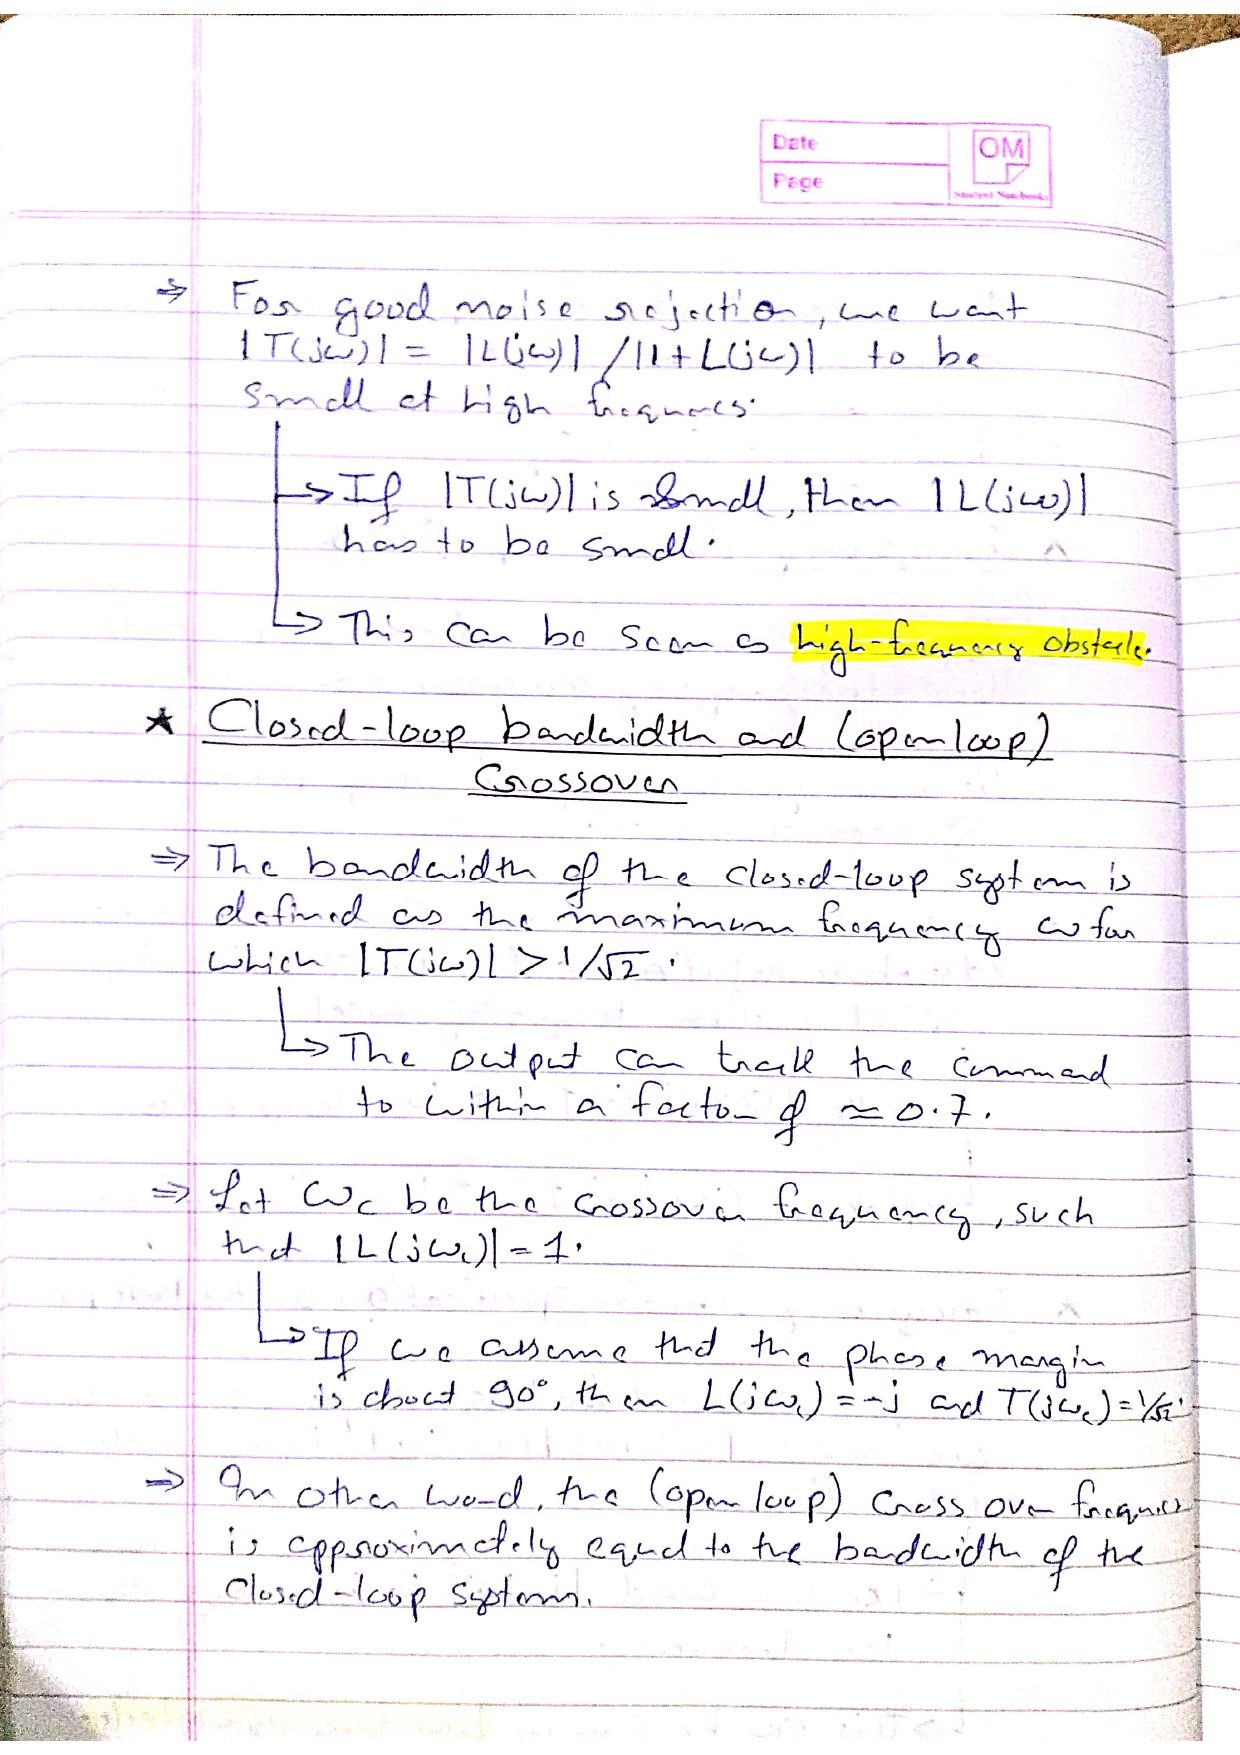 Date
Page
OM
Student Notebooks
⇒ For good noise rejection, we want
|T(jω)| = |L(jω)| / |1 + L(jω)| to be
small at high frequences.
↳ If |T(jω)| is small, then |L(jω)|
has to be small.
↳ This can be seen as high-frequency obstacle.
★ Closed-loop bandwidth and (open loop)
Crossover
⇒ The bandwidth of the closed-loop system is
defined as the maximum frequency ω for
which |T(jω)| > 1/√2.
↳ The output can track the command
to within a factor of ≈ 0.7.
⇒ Let ωc be the crossover frequency, such
that |L(jωc)| = 1.
↳ If we assume that the phase margin
is about 90°, then L(jωc) = -j and T(jωc) = 1/√2.
⇒ In other word, the (open loop) cross over frequency
is approximately equal to the bandwidth of the
closed-loop system.